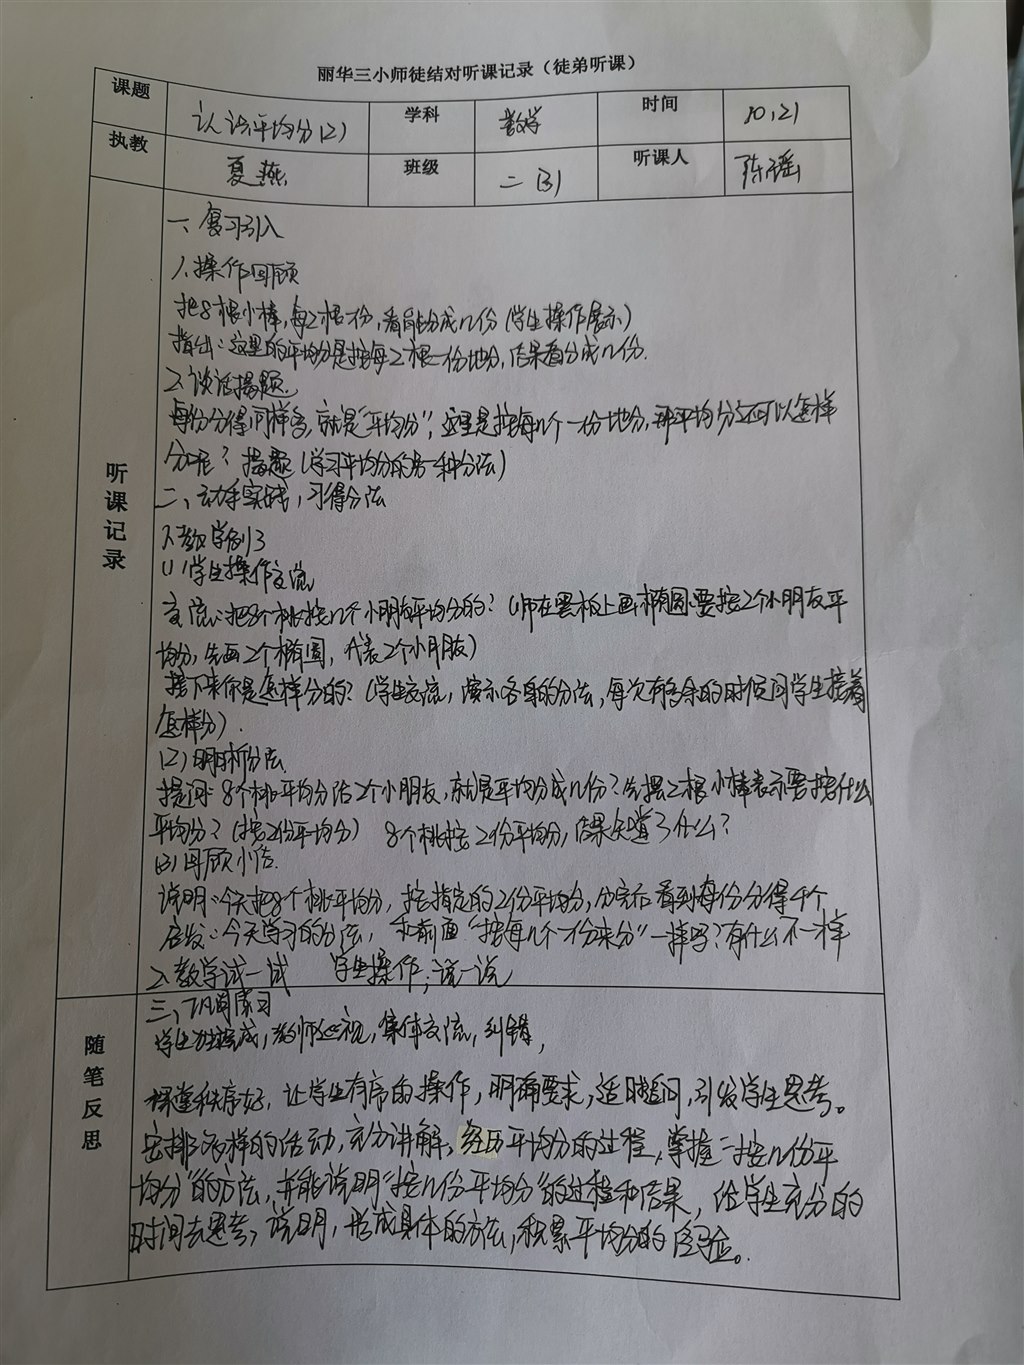 丽华三小师徒结对听课记录（徒弟听课）
课题 认识平均分(2) 学科 数学 时间 10.21
执教 夏燕 班级 二(3) 听课人 陈瑶
听课记录
一、复习引入
1.操作回顾
把8根小棒,每2根一份,看能分成几份(学生操作展示)
指出:这里的平均分是按每2根一份地分,结果看分成几份.
2.谈话揭题.
每份分得同样多,就是"平均分",这里是按每几个一份地分,那平均分还可以怎样
分呢? 揭题(学习平均分的另一种分法)
二、动手实践,习得分法
1.教学例3
(1)学生操作交流
交流:把8个桃按几个小朋友平均分的?(师在黑板上画椭圆:要按2个小朋友平
均分,先画2个椭圆,代表2个小朋友)
接下来你是怎样分的?(学生交流,展示各自的分法,每次有多余的时候问学生接着
怎样分).
(2)明晰分法
提问:8个桃平均分给2个小朋友,就是平均分成几份?先摆2根小棒表示要按什么
平均分?(按2份平均分) 8个桃按2份平均分,结果知道了什么?
(3)回顾小结.
说明:今天把8个桃平均分,按指定的2份平均分,分完后看到每份分得4个
启发:今天学习的分法,和前面"按每几个一份来分"一样吗?有什么不一样
2.教学试一试 学生操作,说一说
三、巩固练习
学生独立完成,教师巡视,集体交流,纠错,
随笔反思
课堂秩序好,让学生有序的操作,明确要求,适时追问,引发学生思考。
安排多样的活动,充分讲解,经历平均分的过程,掌握"按几份平
均分"的方法,并能说明"按几份平均分"的过程和结果,给学生充分的
时间去思考,说明,形成具体的方法,积累平均分的经验。